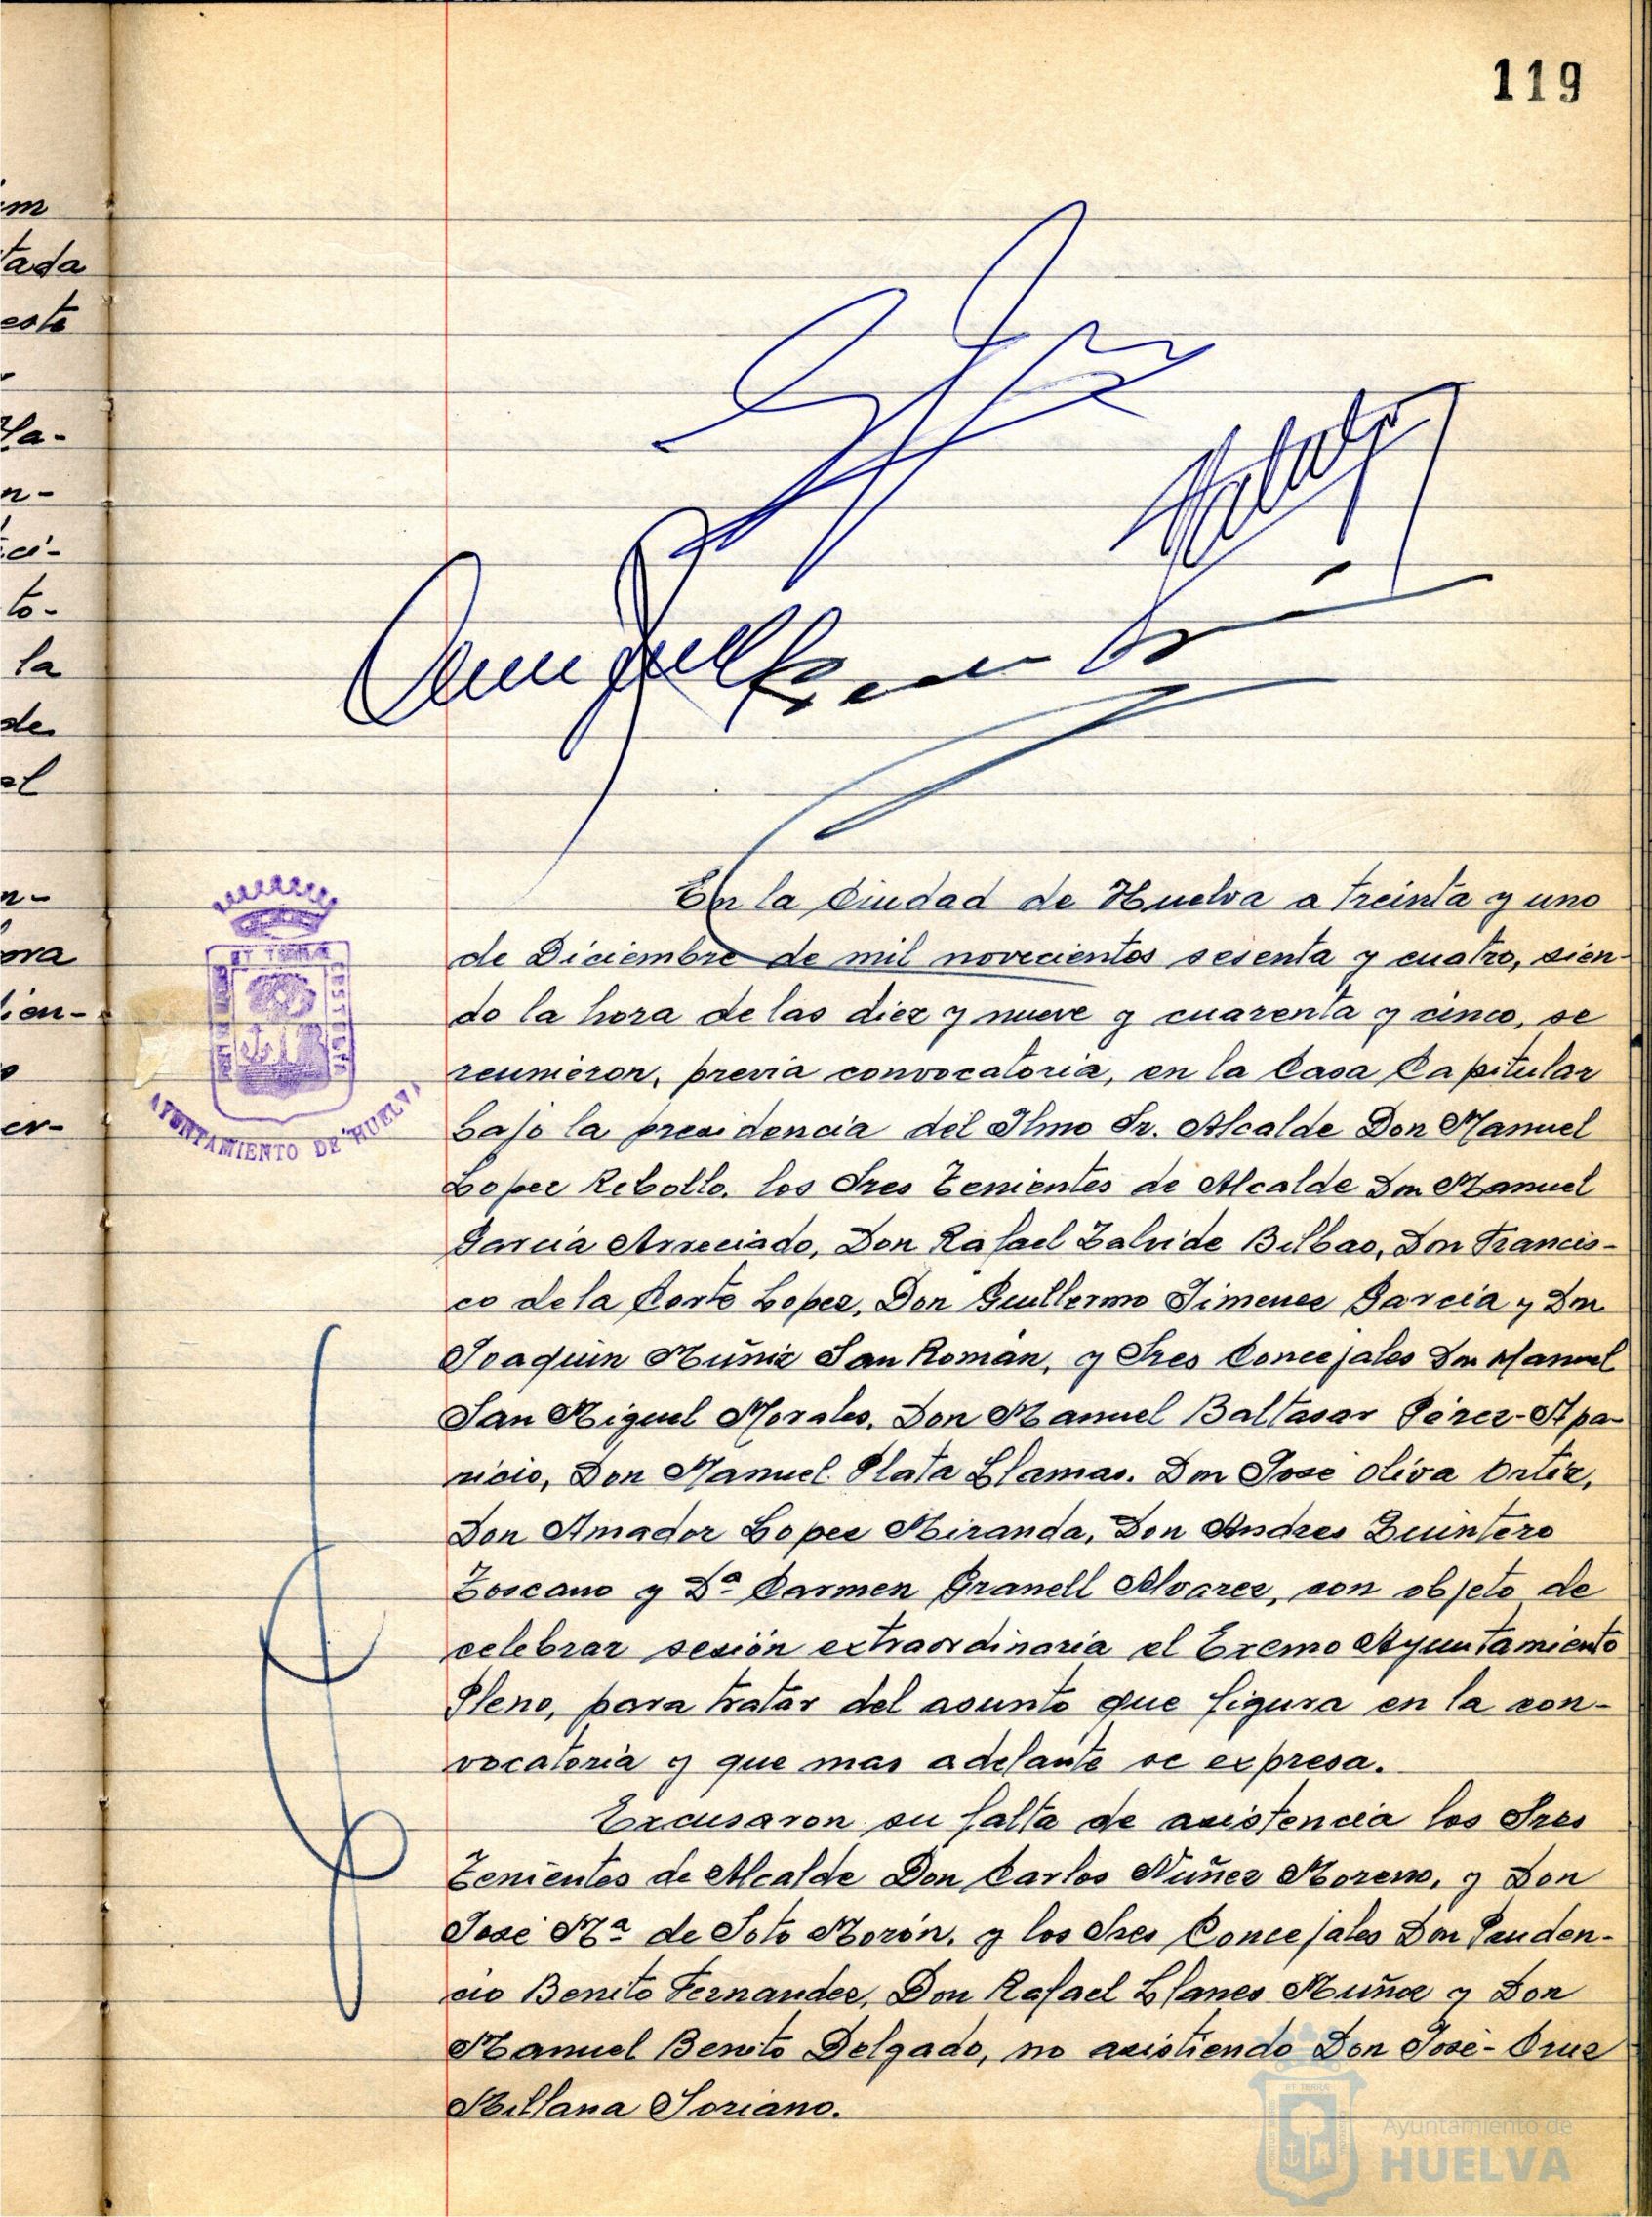 119
im
tada
este
la
de
el
En la Ciudad de Huelva a treinta y uno
de Diciembre de mil novecientos sesenta y cuatro, sien-
do la hora de las diez y nueve y cuarenta y cinco, se
reunieron, previa convocatoria, en la Casa Capitular
bajo la presidencia del Ilmo Sr. Alcalde Don Manuel
Lopez Rebollo, los Sres Tenientes de Alcalde Don Manuel
Garcia Arreciado, Don Rafael Zalvide Bilbao, Don Francis-
co de la Corte Lopez, Don Guillermo Jimenez Garcia y Don
Joaquin Muñiz San Román, y Sres Concejales Don Manuel
San Miguel Morales, Don Manuel Baltasar Pérez-Apa-
ricio, Don Manuel Plata Llamas. Don José Oliva Ortiz,
Don Amador Lopez Miranda, Don Andres Quintero
Toscano y Dª Carmen Granell Alvarez, con objeto de
celebrar sesión extraordinaria el Excmo Ayuntamiento
Pleno, para tratar del asunto que figura en la con-
vocatoria y que mas adelante se expresa.
Excusaron su falta de asistencia los Sres
Tenientes de Alcalde Don Carlos Nuñez Moreno, y Don
José Mª de Soto Morón, y los Sres Concejales Don Pruden-
cio Benito Fernandez, Don Rafael Llanes Muñoz y Don
Manuel Benito Delgado, no asistiendo Don José-Cruz
Millana Soriano.
AYUNTAMIENTO DE HUELVA
Ayuntamiento de
HUELVA